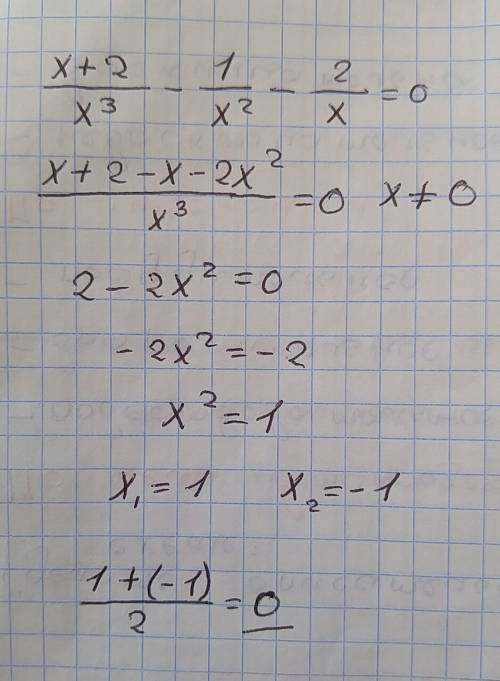 (x+2)/x³ - 1/x² - 2/x = 0
(x+2-x-2x²)/x³ = 0 x≠0
2-2x² = 0
-2x² = -2
x² = 1
x₁ = 1 x₂ = -1
(1+(-1))/2 = 0